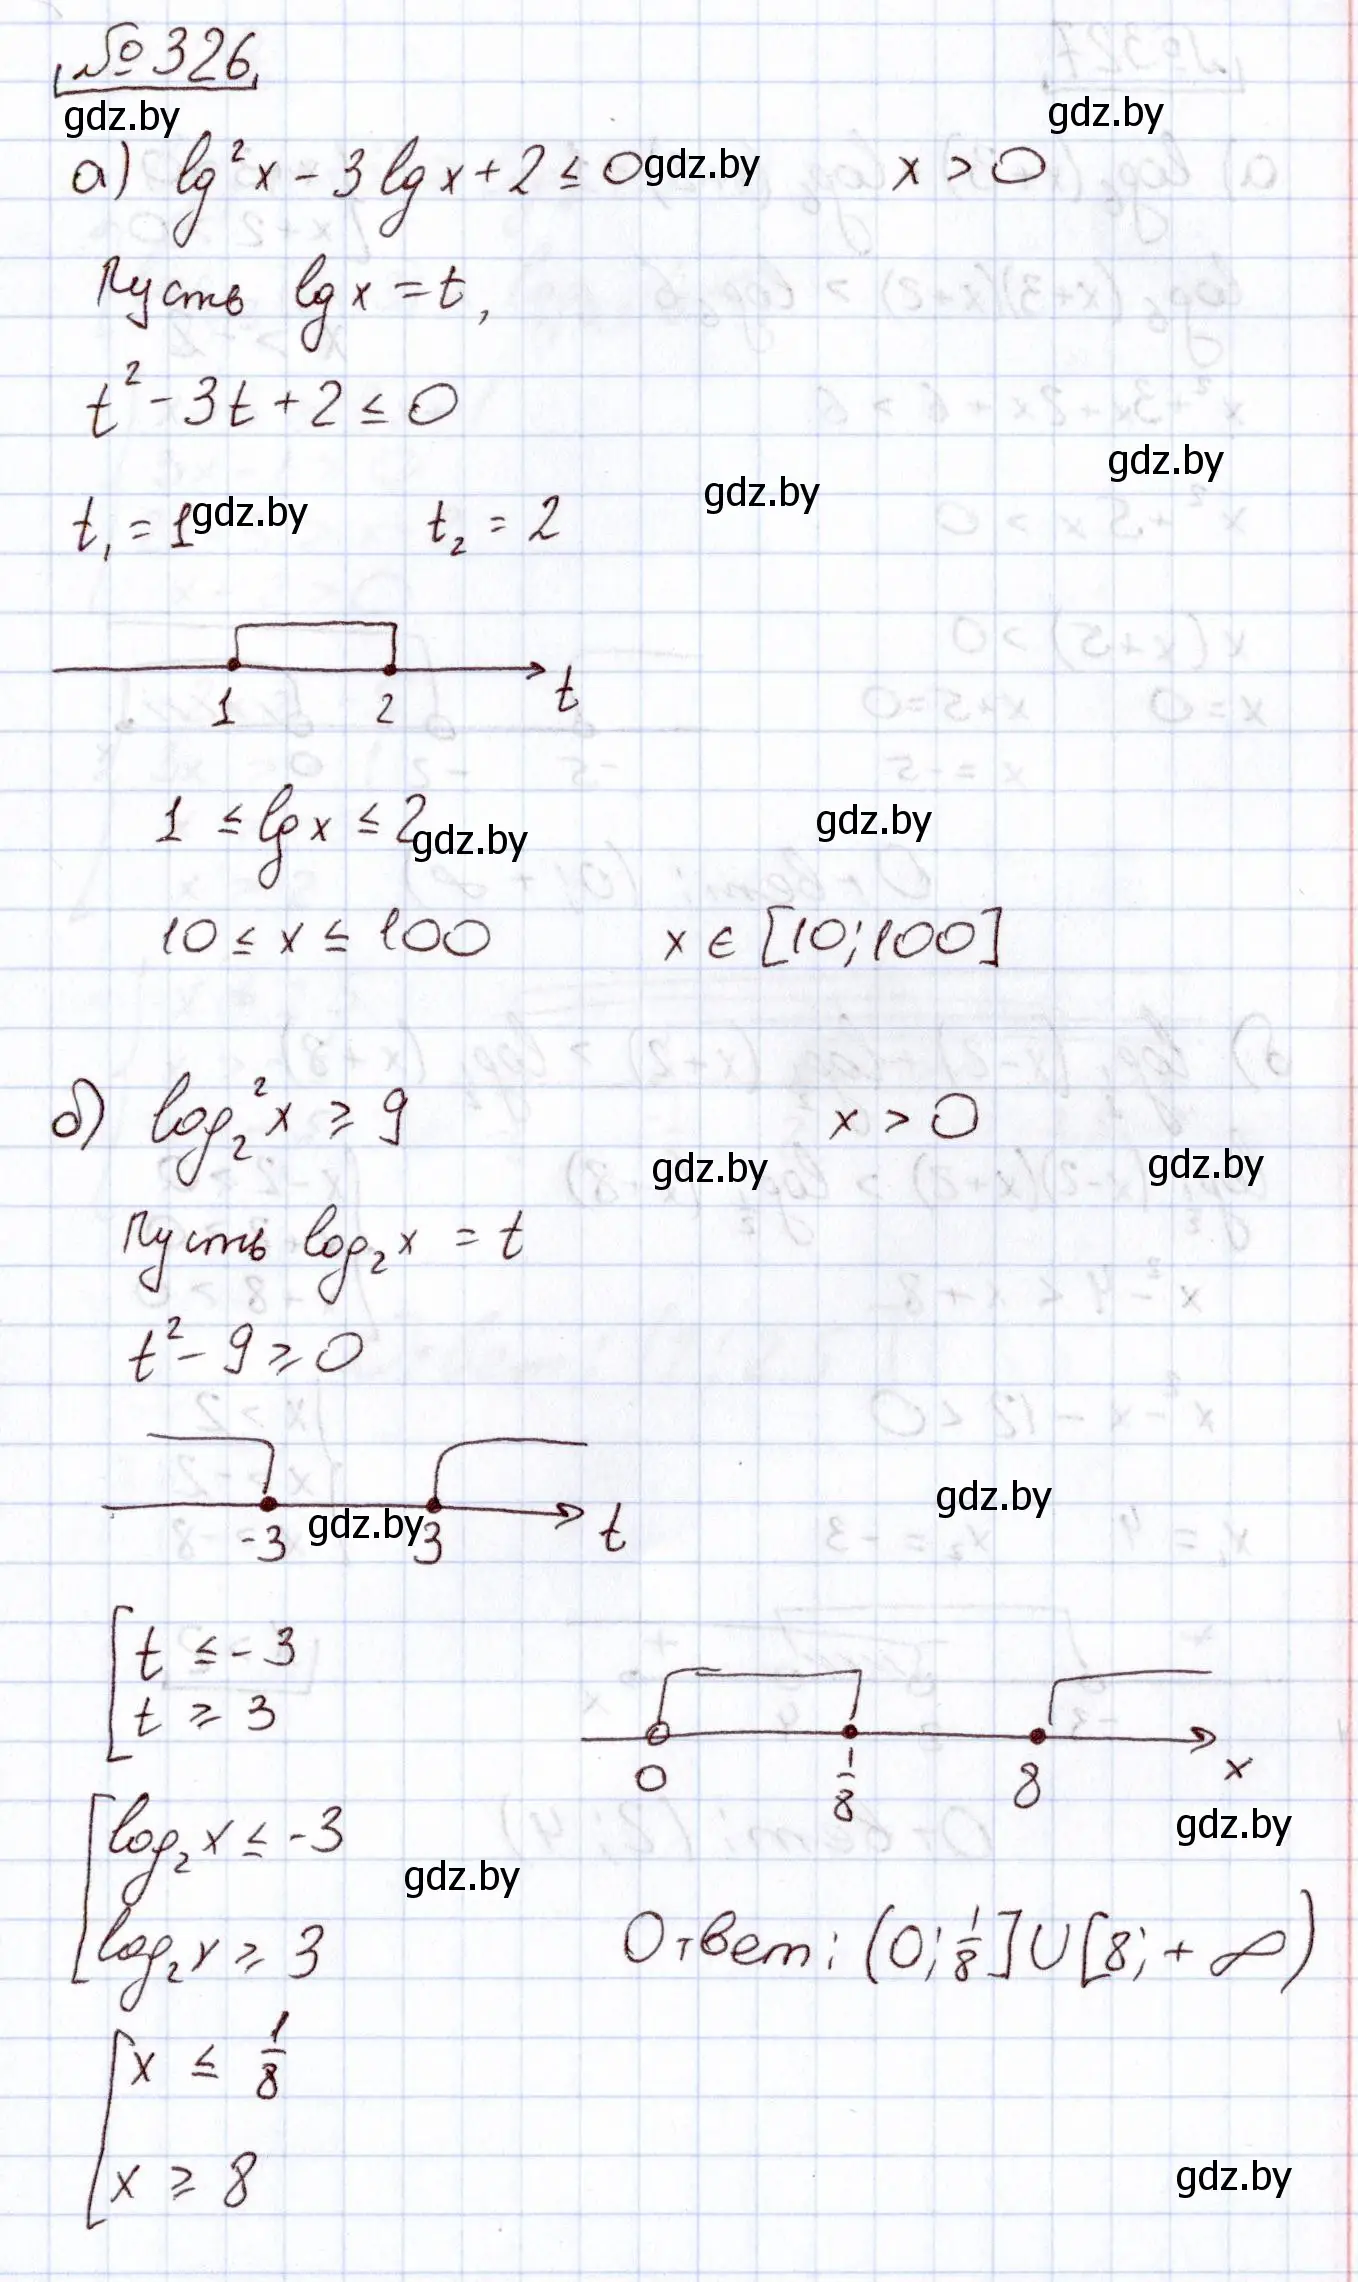 №326
gdz.by
gdz.by
а) lg²x - 3 lg x + 2 ≤ 0 gdz.by x > 0
Пусть lg x = t,
t² - 3t + 2 ≤ 0
gdz.by
gdz.by
t₁ = 1 gdz.by t₂ = 2
1 2 t
1 ≤ lg x ≤ 2
gdz.by
gdz.by
10 ≤ x ≤ 100 x ∈ [10; 100]
б) log₂²x ≥ 9 x > 0
gdz.by
gdz.by
Пусть log₂x = t
t² - 9 ≥ 0
gdz.by
-3 gdz.by 3 t
[ t ≤ -3
t ≥ 3
0 1/8 8 x
gdz.by
[ log₂x ≤ -3
gdz.by
log₂x ≥ 3
Ответ: (0; 1/8] ∪ [8; +∞)
[ x ≤ 1/8
x ≥ 8
gdz.by